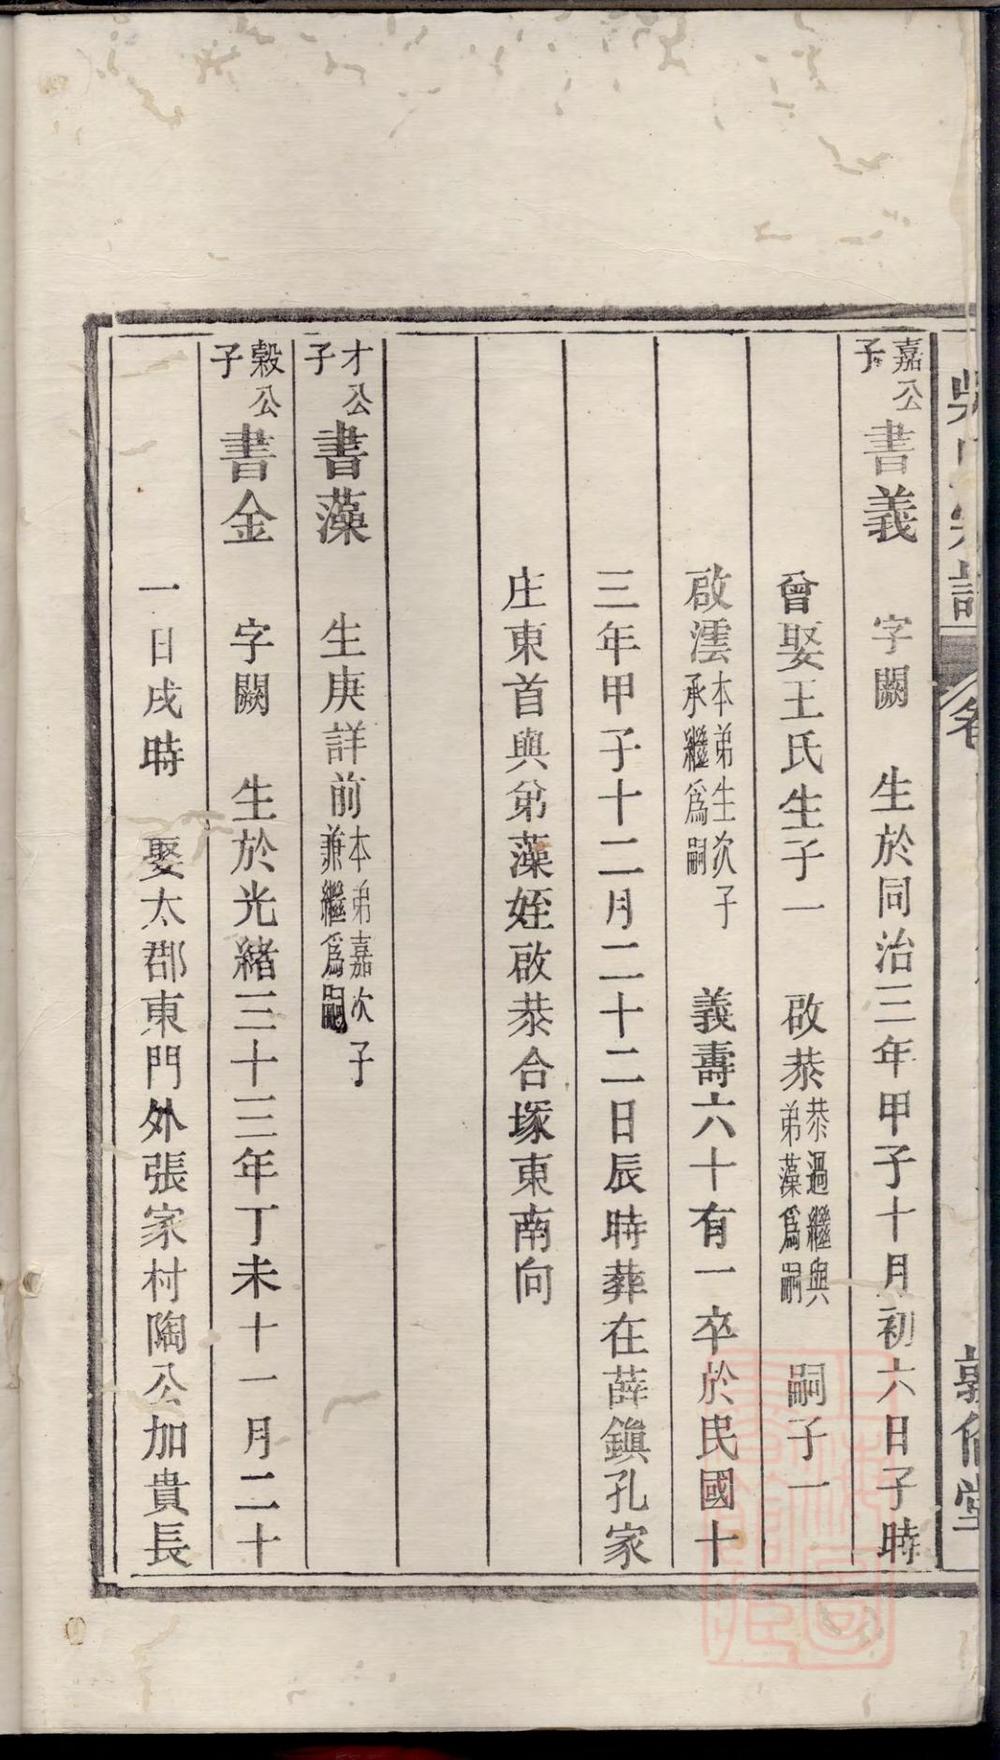 嘉公子 書義 字闕 生於同治三年甲子十月初六日子時
曾娶王氏生子一 啟㳟㳟過繼與弟藻爲嗣 嗣子一
啟澐本弟生次子承繼爲嗣 義壽六十有一卒於民國十
三年甲子十二月二十二日辰時葬在薛鎭孔家
庄東首與弟藻姪啟㳟合塚東南向
才公子 書藻 生庚詳前本弟嘉次子兼繼爲嗣
榖公子 書金 字闕 生於光緒三十三年丁未十一月二十
一日戌時 娶太郡東門外張家村陶公加貴長